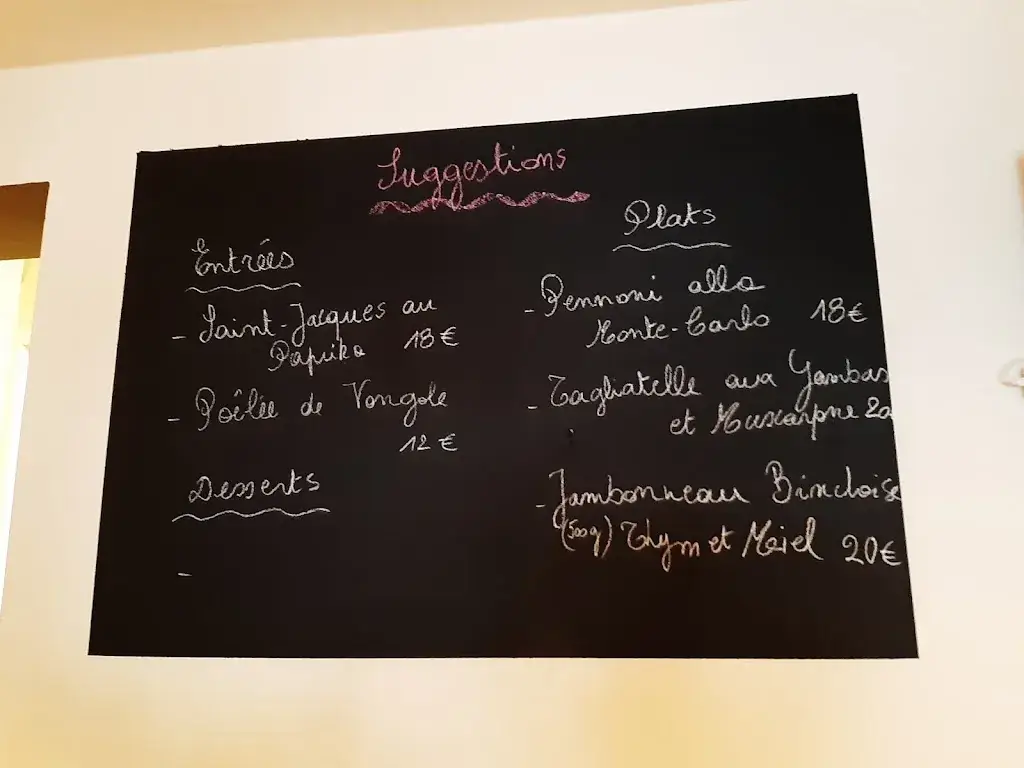 Suggestions
Entrées
- Saint-Jacques au
Paprika 18€
- Poêlée de Vongole
12€
Desserts
-
Plats
- Pennoni alla
Monte-Carlo 18€
- Tagliatelle aux Gambas
et Muscarpne
- Jambonneau Binchoise
(500g) Thym et Miel 20€